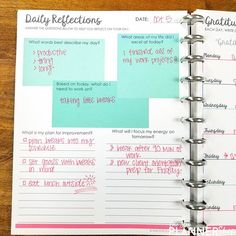 Daily Reflections
DATE: Oct 5
ANSWER THE QUESTIONS BELOW TO HELP YOU REFLECT ON YOUR DAY.
What words best describe my day?
productive
tiring
long
What areas of my life did I
excel at today?
I finished all of
my work projects
Based on today, what do I
need to work on?
taking little breaks
What is my plan for improvement?
plan breaks into my
schedule
set goals with breaks
in mind
eat lunch outside
What will I focus my energy on
tomorrow?
break after 90 min of
work
new client
prep for Friday!
Gratitu
EACH DAY, WRITE
"Gratitude
Monday
Tuesday
Wednesday
Thursday
Friday
Saturday
Sunday